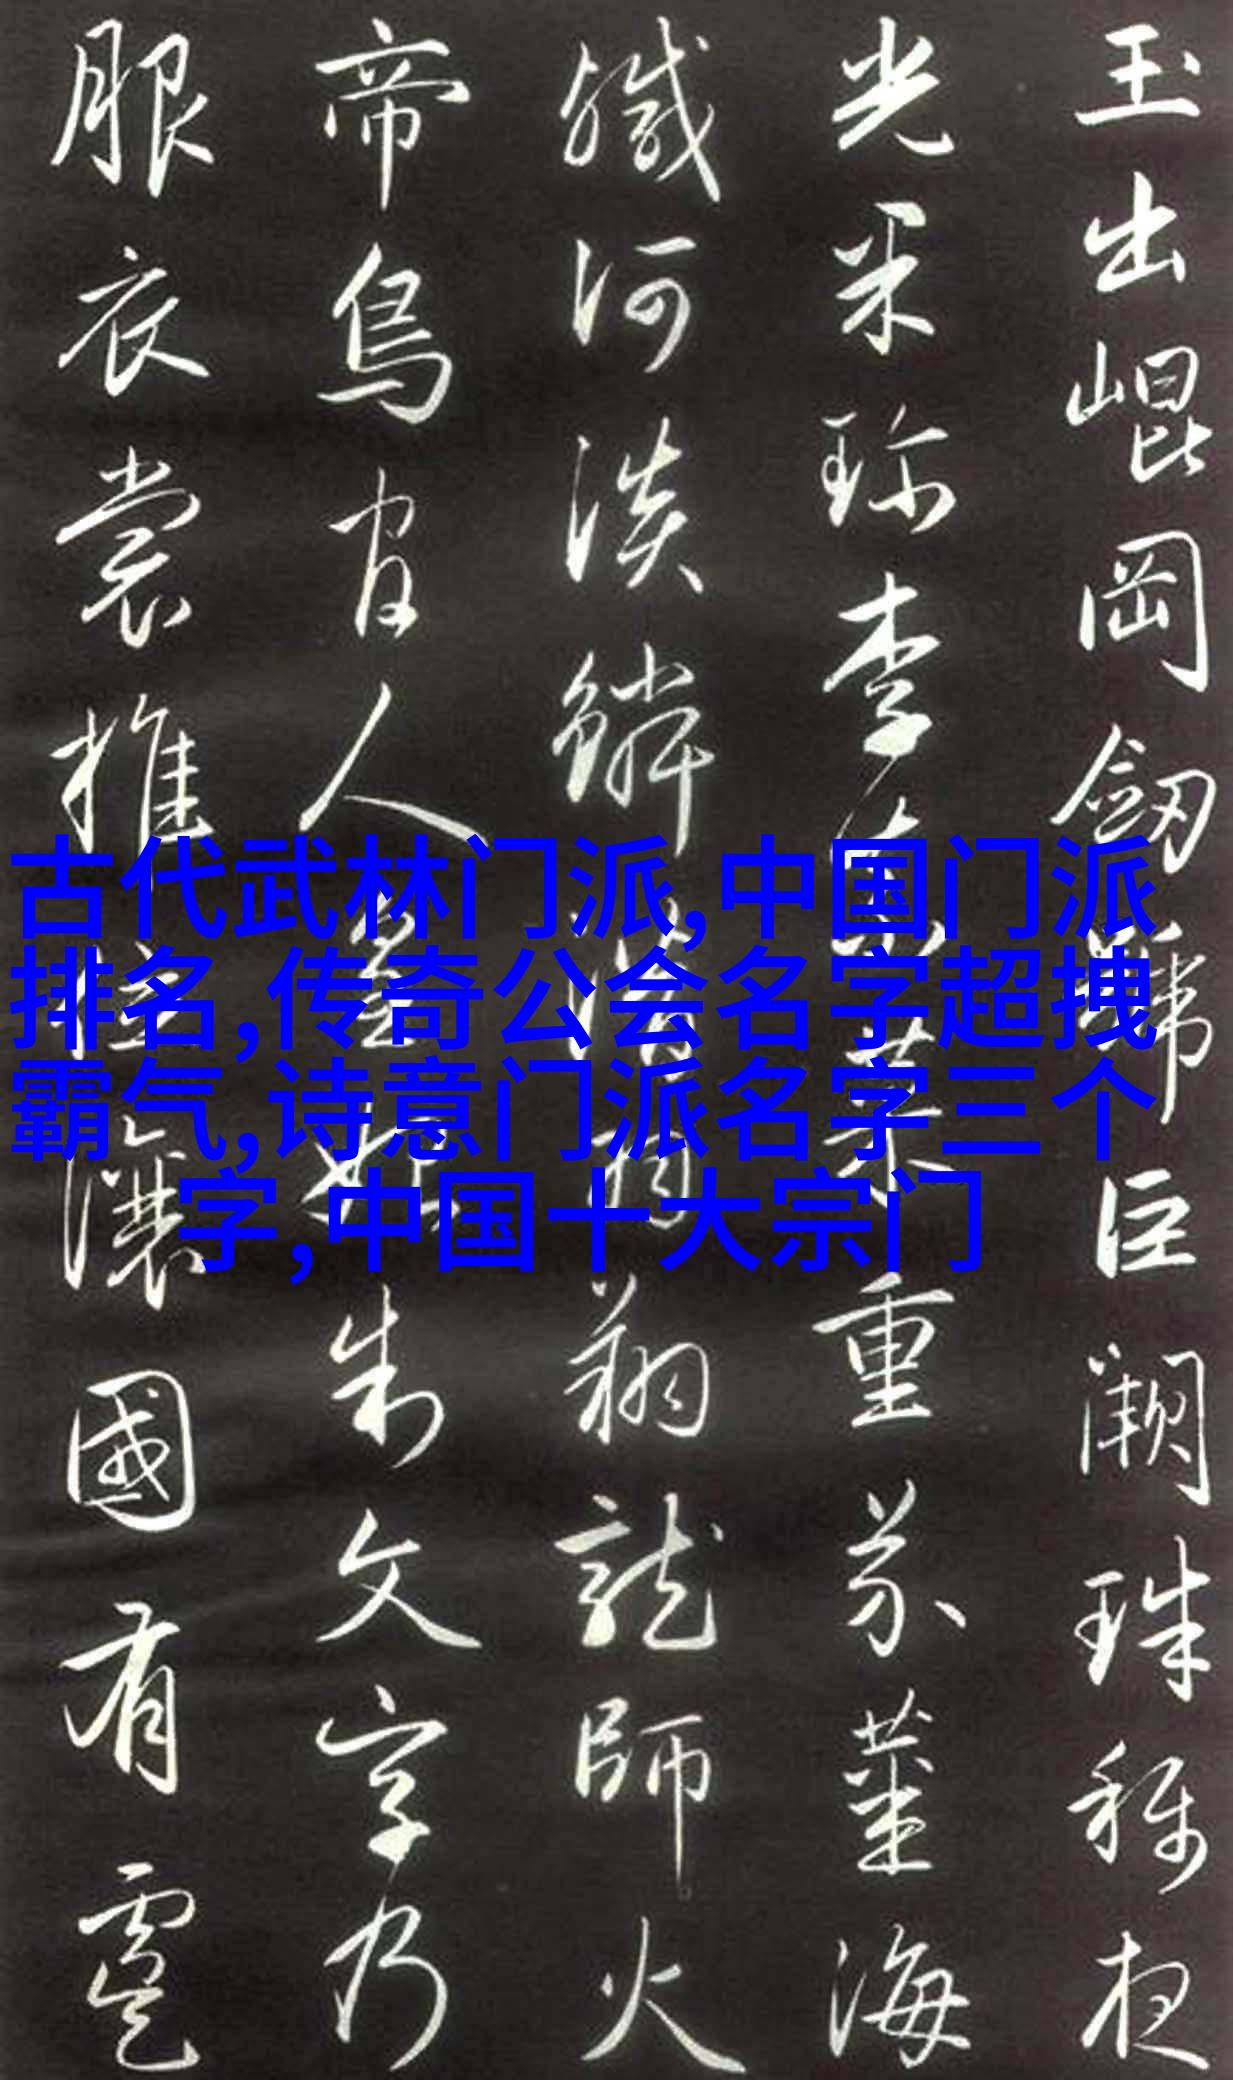 玉出崐岡劒號巨闕珠稱夜
光果珍李柰菜重芥薑海
鹹河淡鱗潛羽翔龍師火
帝鳥官人皇始制文字乃
服衣裳推位讓國有虞
古代武林门派,中国门派
排名,传奇公会名字超拽
霸气,诗意门派名字三个
字,中国十大宗门